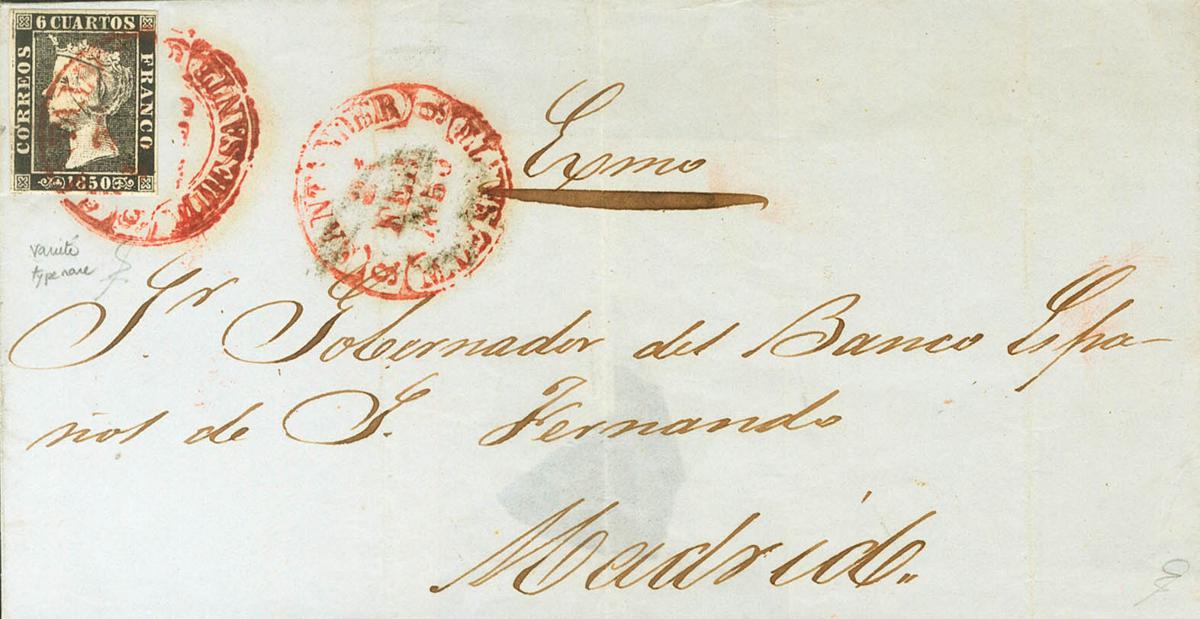 6 CUARTOS
CORREOS
FRANCO
1850
SANTANDER
FEB
1850
Exmo
variété
type rare
Sr. Gobernador del Banco Espa-
ñol de S. Fernando
Madrid.